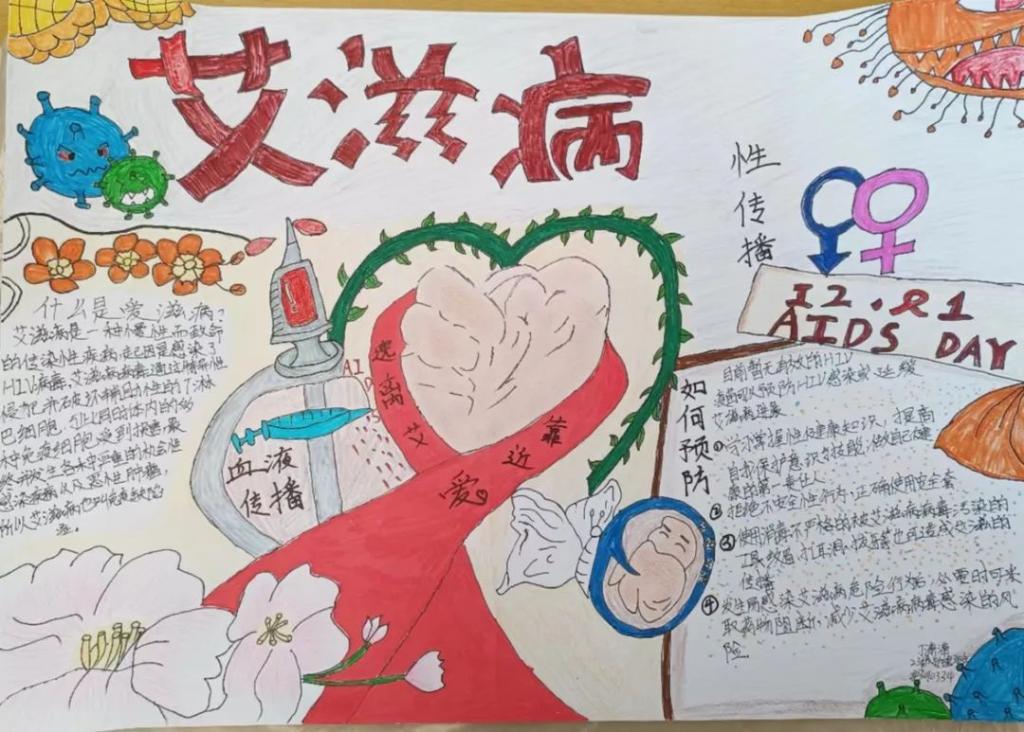 艾滋病
性传播
12.1
AIDS DAY
什么是爱滋病?
艾滋病是一种慢性而致命
的传染性疾病,起因是感染了
HIV病毒,艾滋病病毒通过
侵犯并破坏辅助性的T淋
巴细胞,
终并发生各种严重的机会性
感染疾病以及恶性肿瘤,
所以艾滋病也叫免疫缺陷
AI
D
S
远离艾
靠近爱
血液
传播
如何预防
目前暂无有效的HIV
疫苗可以预防HIV感染或延缓
艾滋病
①学习掌握性健康知识,提高
自我保护意识与技能,做自己健
康的第一责任人
②拒绝不安全性行为,正确使用安全套
③使用消毒不严格的被艾滋病病毒污染的
工具纹眉、打耳洞、拔牙等也可造成艾滋病的
传播
④发生易感染艾滋病危险行为后,必要时可采
取药物阻断,减少艾滋病病毒感染的风
险.